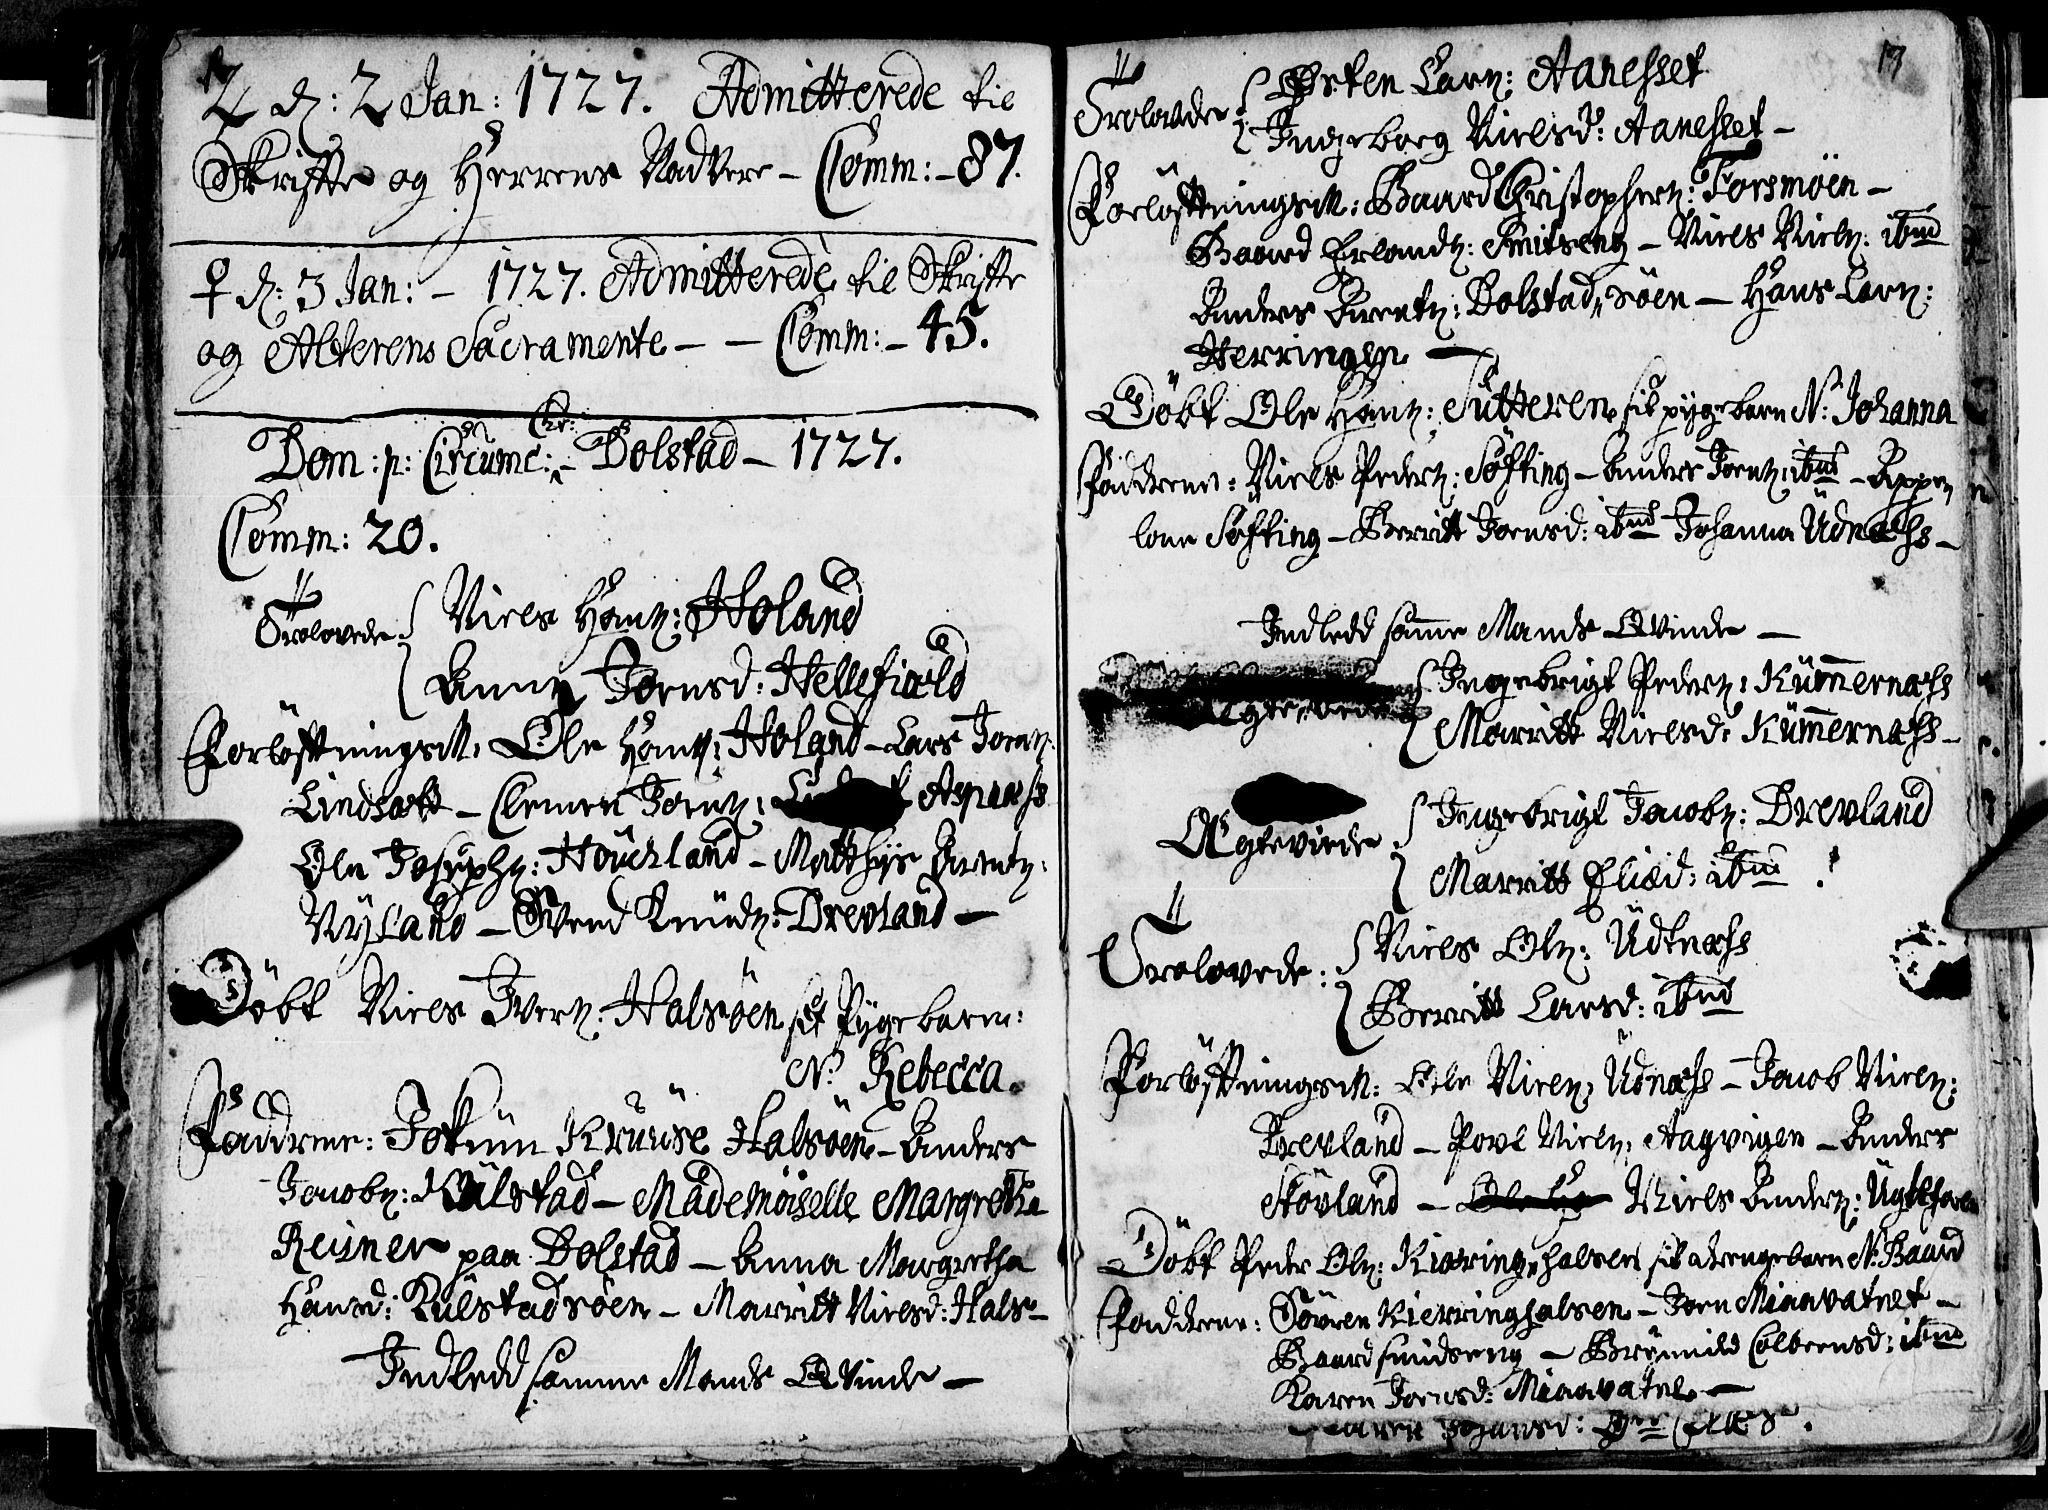 ♃ d: 2 Jan: 1727. Admitterede til
Skrifte og Herrens Nadvere – Comm: – 87.
♀ d: 3 Jan: – 1727. Admitterede til Skrifte
og Alterens Sacramente – – Comm: – 45.
Dom: p: Circumc: Chr: – Dolstad – 1727.
Comm: 20.
Trolovede { Niels Hanß: Holand
Anna Joensd: Hellefiæld
Forløftningsm: Ole Hanß: Holand – Lars Joenß:
Lindsæt – Clemen Joenß: Aspnæss
Ole Josephß: Houchland – Matthijs Arentz:
Nyland – Svend Knudß: Drevland –
Döbt Niels Iverß: Halsöen sit Pigebarn:
N: Rebecca.
Faddrene: Jokum Kruuse Halsöen – Anders
Jacobß: Kulstad – Mademoiselle Margretha
Reisner paa Dolstad – Anna Margretha
Hansd: Kulstadsöen – Marritt Nielsd: Hals –
Indledd samme Mands Qvinde –
13
Trolovde { Østen Larß: Aanesset
Ingeborg Nielsd: Aanesset –
Forløftningsm: Baard Christopherß: Forsmöen –
Baard Erlandß: Smitseng – Niels Nielß: ibid
Anders Arentß: Dolstad,,söen – Hans Larß:
Herringen –
Döbt Ole Hanß: Sutteren sit pigebarn N: Johanna
Faddrene: Niels Pederß: Söfting – Anders Joenß: ibid –
lone Söfting – Berritt Joensd: ibid Johanna Udnæss –
Indledd samme Mands Qvinde –
{ Ingebrigt Pederß: Kummernæss
Marritt Nielsd: Kummernæss –
Ægtevirde { Ingebrigt Jacobß: Drevland
Marritt Eliæd: ibid .
Trolovede: { Niels Olß: Udtnæss
Berritt Larsd: ibid
Forløftningsm: Ole Nielß: Udnæss – Jacob Nielß:
Drevland – Povl Nielß: Aagvigen – Anders
Stövland – Niels Anderß:
Döbt Peder Olß: Kierring,,halsen sit drengebarn N: Baard
Faddrene: Sövren Kierringhalsen – Joen Miaavatnet –
Baard smidseng – Brynnild Colbeensd: ibid
Karen Joensd: Miaavatne –